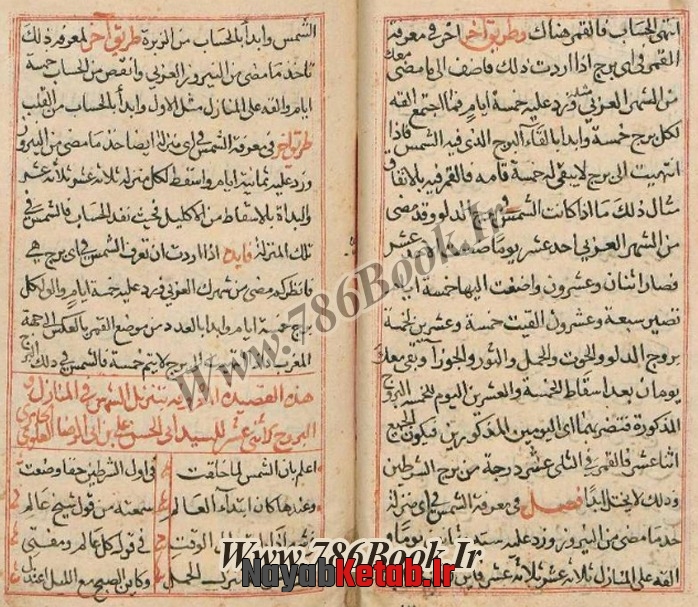 انتهى الحساب فالقمر هناك وطريق آخر اخر في معرفة
القمر في اى برج اذا اردت ذلك فاضف الى ما مضى معك
من الشهر العربى مثله وزد عليه خمسة ايام فما اجتمع القه
لكل برج خمسة وابدا بالقاء البرج الذى فيه الشمس فاذا
انتهيت الى برج لا يبقى له خمسة تامه فالقمر فيه بالاتفاق
مثال ذلك ما اذا كانت الشمس في برج الدلو وقد مضى
من الشهر العربى احد عشر يوما عشر
فصار اثنان وعشرون واضفت اليها خمسة
تصير سبعة وعشرون القيت خمسة وعشرين لخمسة
بروج الدلو والحوت والحمل والثور والجوزا وبقى معك
يومان بعد اسقاط الخمسة والعشرين اليوم للخمسه البروج
المذكورة فتضربها اى اليومين المذكورين فيكون الجميع
اثنا عشر فالقمر في اثنى عشر درجة من برج السرطان
وذلك لا يختل ابدا فصل في معرفة الشمس في اى منزلة
خذ ما مضى من النيروز وزد عليه يوما
القه على المنازل ثلاثه عشر ثلاثه عشر فاين
الشمس وابدا بالحساب من الزبرة طريق آخر لمعرفة ذلك
تاخذ ما مضى من النيروز العربى وانقص من الحساب خمسة
ايام والقه على المنازل مثل الاول وابدا بالحساب من القلب
طريق آخر في معرفة الشمس في اى منزلة ايضا خذ ما مضى من النيروز
وزد عليه ثمانية ايام واسقط لكل منزلة ثلاثة عشر ثلاثة عشر
والبداة بالاسقاط من الاكليل فحيث نفد الحساب فالشمس في
تلك المنزلة فايدة اذا اردت ان تعرف الشمس في اى برج هى
فانظر كم مضى من شهرك العربى فزد عليه خمسة ايام والق لكل
برج خمسة ايام وابدا بالعدد من موضع القمر بالعكس الى جهة
المغرب البروج لا يتم خمسة فالشمس في ذلك البرج
هذه القصيدة بتنزيل الشمس في المنازل و
البروج الاثنى عشر للسيد ابى الحسن على بن ابى الرضا العلوى
اعلم بان الشمس لما خلقت في اول الشرطين حقا وضعت
وعندها كان ابتداء العالم سمعته من قول شيخ عالم
الوقت في قول كل عالم ومفتى
الحمل وكان الصبح مع الليل اعتدل
Www.786Book.Ir
Www.786Book.Ir
NayabKetab.Ir